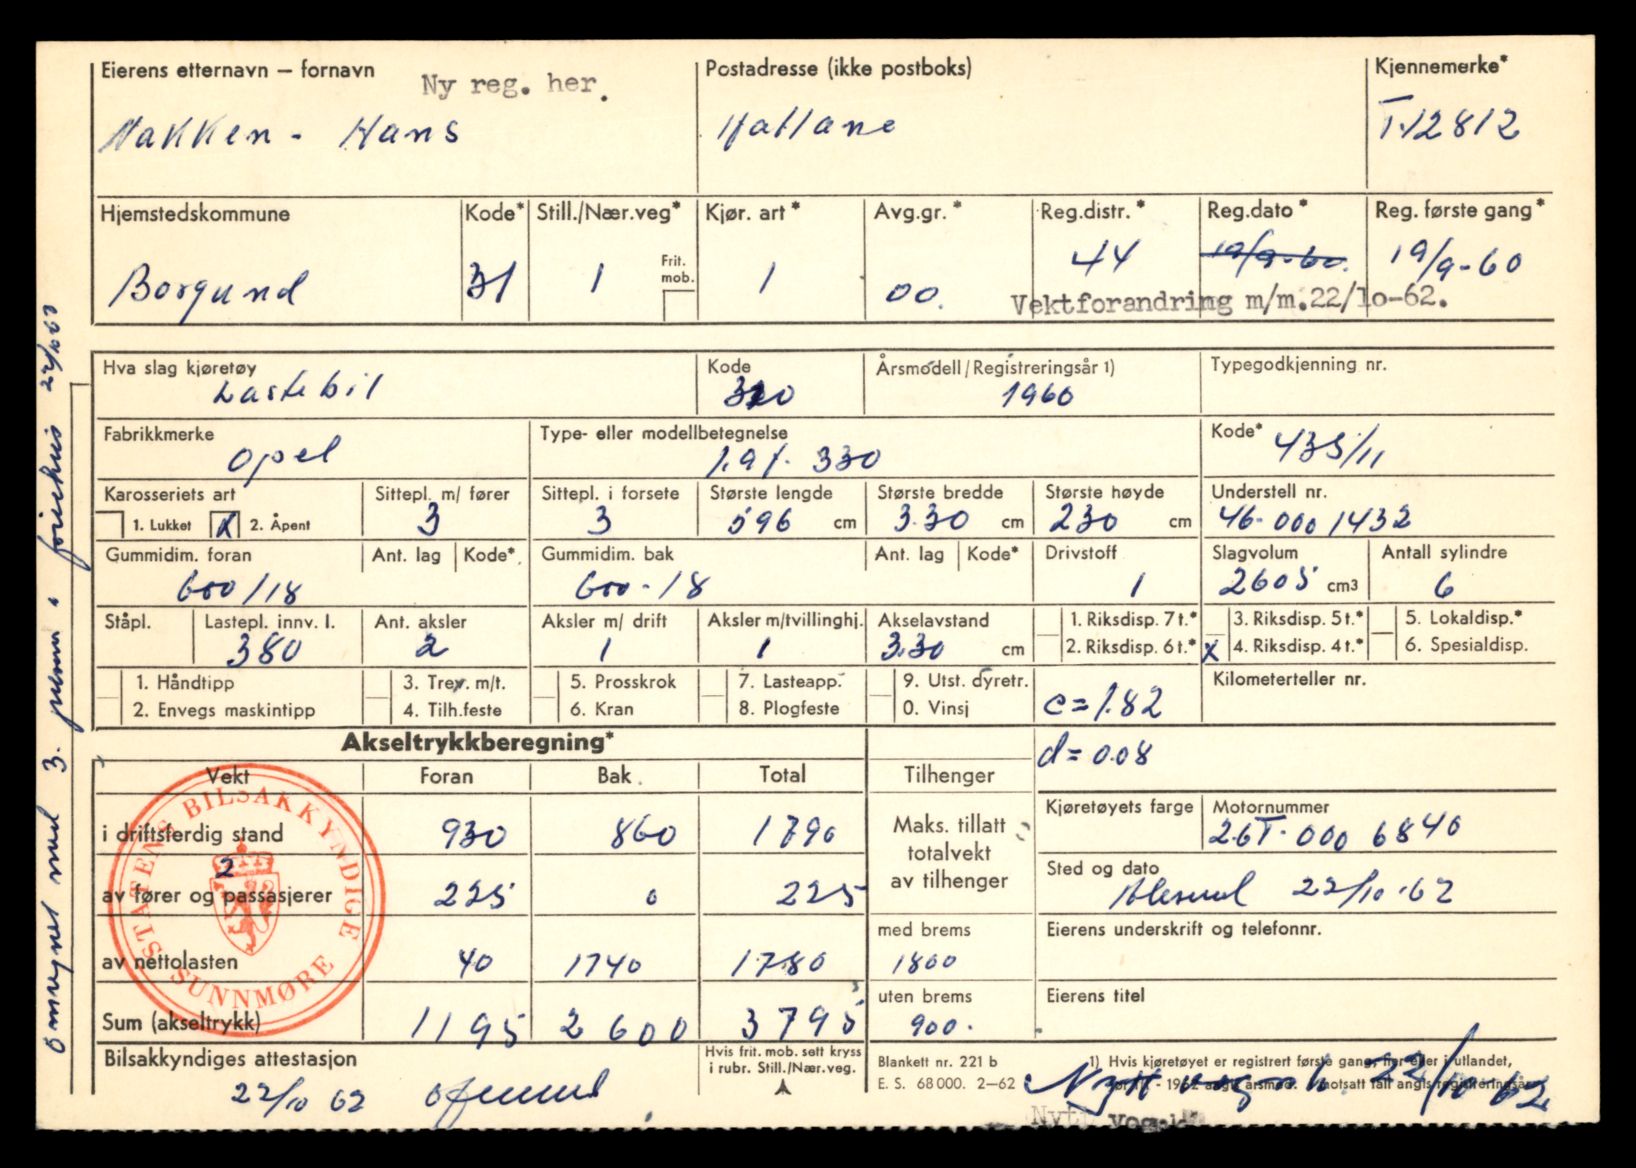 Eierens etternavn – fornavn Ny reg. her. Postadresse (ikke postboks) Kjennemerke*
Nakken - Hans Hatlane T-12812
Hjemstedskommune Kode* Still./Nær.veg* Kjør. art* Avg.gr.* Reg.distr.* Reg.dato* Reg. første gang*
Borgund 31 1 Frit. mob. 1 00. 44 19/9-60. 19/9-60
Vektforandring m/m.22/1o-62.
Hva slag kjøretøy Kode Årsmodell/Registreringsår 1) Typegodkjenning nr.
Lastebil 310 1960
Fabrikkmerke Type- eller modellbetegnelse Kode* 435/11
Opel 1.9t. 330
Karosseriets art Sittepl. m/ fører Sittepl. i forsete Største lengde Største bredde Største høyde Understell nr.
1. Lukket X 2. Åpent 3 3 596 cm 3.30 cm 230 cm 46-0001432
Gummidim. foran Ant. lag Kode* Gummidim. bak Ant. lag Kode* Drivstoff Slagvolum Antall sylindre
600/18 600-18 1 2605 cm3 6
Ståpl. Lastepl. innv. l. Ant. aksler Aksler m/ drift Aksler m/tvillinghj. Akselavstand 1. Riksdisp. 7 t.* 3. Riksdisp. 5 t.* 5. Lokaldisp.*
380 2 1 1 3.30 cm 2. Riksdisp. 6 t.* X 4. Riksdisp. 4 t.* 6. Spesialdisp.
1. Håndtipp 3. Trev. m/t. 5. Prosskrok 7. Lasteapp. 9. Utst. dyretr. Kilometerteller nr.
2. Envegs maskintipp 4. Tilh.feste 6. Kran 8. Plogfeste 0. Vinsj c = 1.82
Akseltrykkberegning* d = 0.08
Vekt Foran Bak. Total Tilhenger
i driftsferdig stand 930 860 1790
Maks. tillatt
totalvekt
av tilhenger
Kjøretøyets farge Motornummer
2.6T- 000 6840
2
av fører og passasjerer 225 0 225
Sted og dato
Alesund 22/10-62
av nettolasten 40 1740 1780
med brems
1800
Eierens underskrift og telefonnr.
Sum (akseltrykk) 1195 2600 3795
uten brems
900.
Eierens titel
STATENS BILSAKKYNDIGE
SUNNMØRE
Bilsakkyndiges attestasjon
22/10 62
Hvis frit. mob. sett kryss
i rubr. Still./Nær.veg.
Blankett nr. 221 b
E. S. 68000. 2–62
1) Hvis kjøretøyet er registrert første gang, her eller i utlandet,
Nytt vognk. 22/10 62
Nytt vognk
Omsynet med 3. person i førerhus 22/10 62